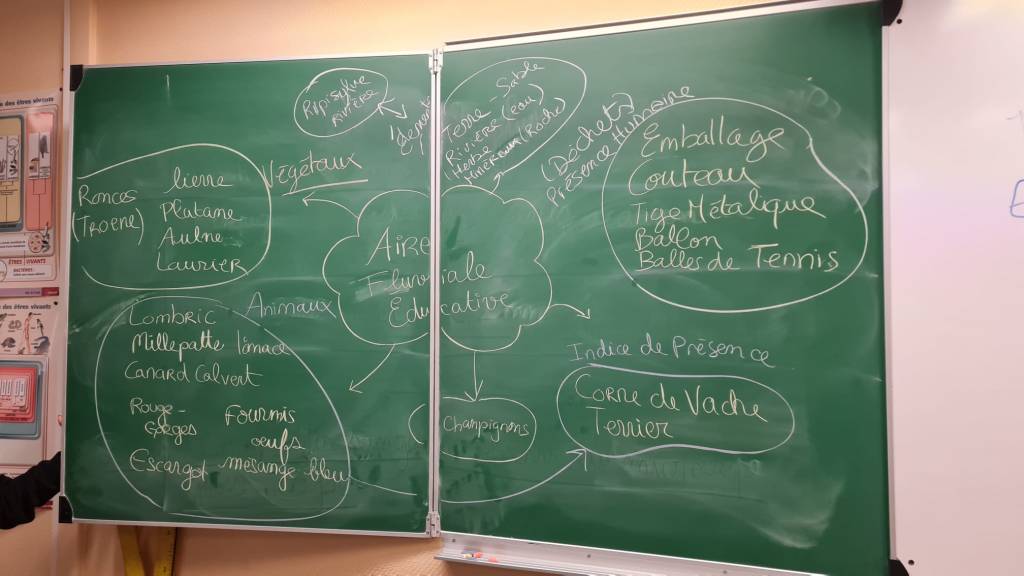 Ripisylve
rivière
dépend
Terre - Sable
Rivière (eau)
Herbe
Minéraux (Roche)
(Déchets)
Présence Humaine
Emballage
Couteau
Tige Métalique
Ballon
Balles de Tennis
Végétaux
Ronces lierre
(Troene) Platane
Aulne
Laurier
Aire
Fluvoiale
Educative
Animaux
Lombric
Millepatte limace
Canard Colvert
Rouge- Fourmis
Gorges oeufs
Escargot mesange bleu
Champignons
Indice de Présence
Corne de Vache
Terrier
des êtres vivants
ÊTRES VIVANTS
des êtres vivants